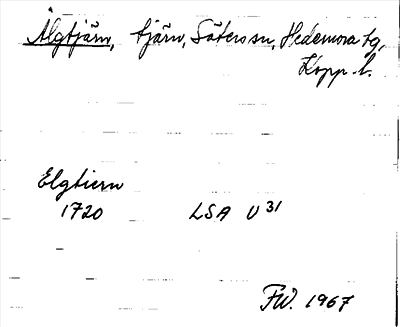 Älgtjärn, tjärn, Säters sn, Hedemora tg,
Kopp. l.
Elgtiern
1720 LSA U 31
FW. 1967